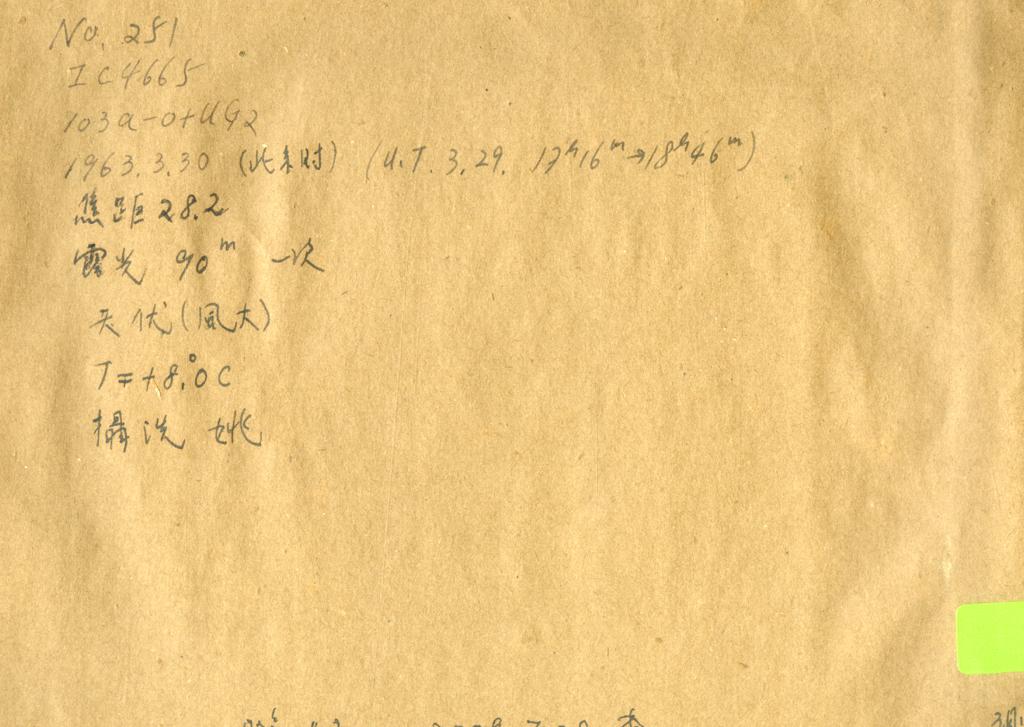 No. 251
IC4665
103a-O+UG2
1963.3.30 (北京时) (U.T. 3.29. 17h16m→18h46m)
焦距 28.2
露光 90m 一次
天伏(風大)
T=+8.°0C
攝洗 姚